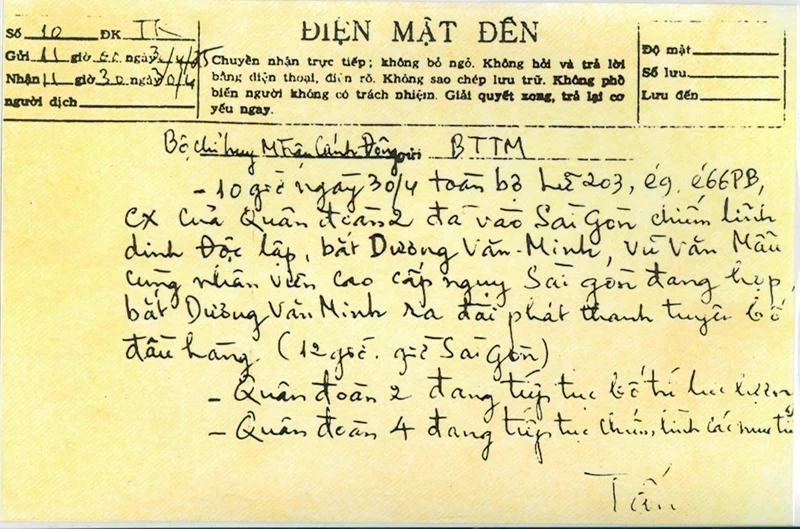 ĐIỆN MẬT ĐẾN
Số 10 ĐK TK
Gửi 11 giờ ngày 30/4/75
Nhận 11 giờ 30 ngày 30/4
người dịch
Chuyển nhận trực tiếp; không bỏ ngỏ. Không hỏi và trả lời
bằng điện thoại, điện rõ. Không sao chép lưu trữ. Không phổ
biến người không có trách nhiệm. Giải quyết xong, trả lại cơ
yếu ngay.
Độ mật
Số lưu
Lưu đến
Bộ chỉ huy M Trận Cánh Đông gửi BTTM
- 10 giờ ngày 30/4 toàn bộ 203, e9, e66PB,
CX của Quân đoàn 2 đã vào Sài Gòn chiếm lĩnh
dinh Độc lập, bắt Dương Văn-Minh, Vũ Văn Mẫu
cùng nhân viên cao cấp ngụy Sài gòn đang họp,
bắt Dương Văn Minh ra đài phát thanh tuyên bố
đầu hàng. (12 giờ. giờ Sài Gòn)
- Quân đoàn 2 đang tiếp tục bố trí lực lượng
- Quân đoàn 4 đang tiếp tục chiếm lĩnh các mục ti
Tấn